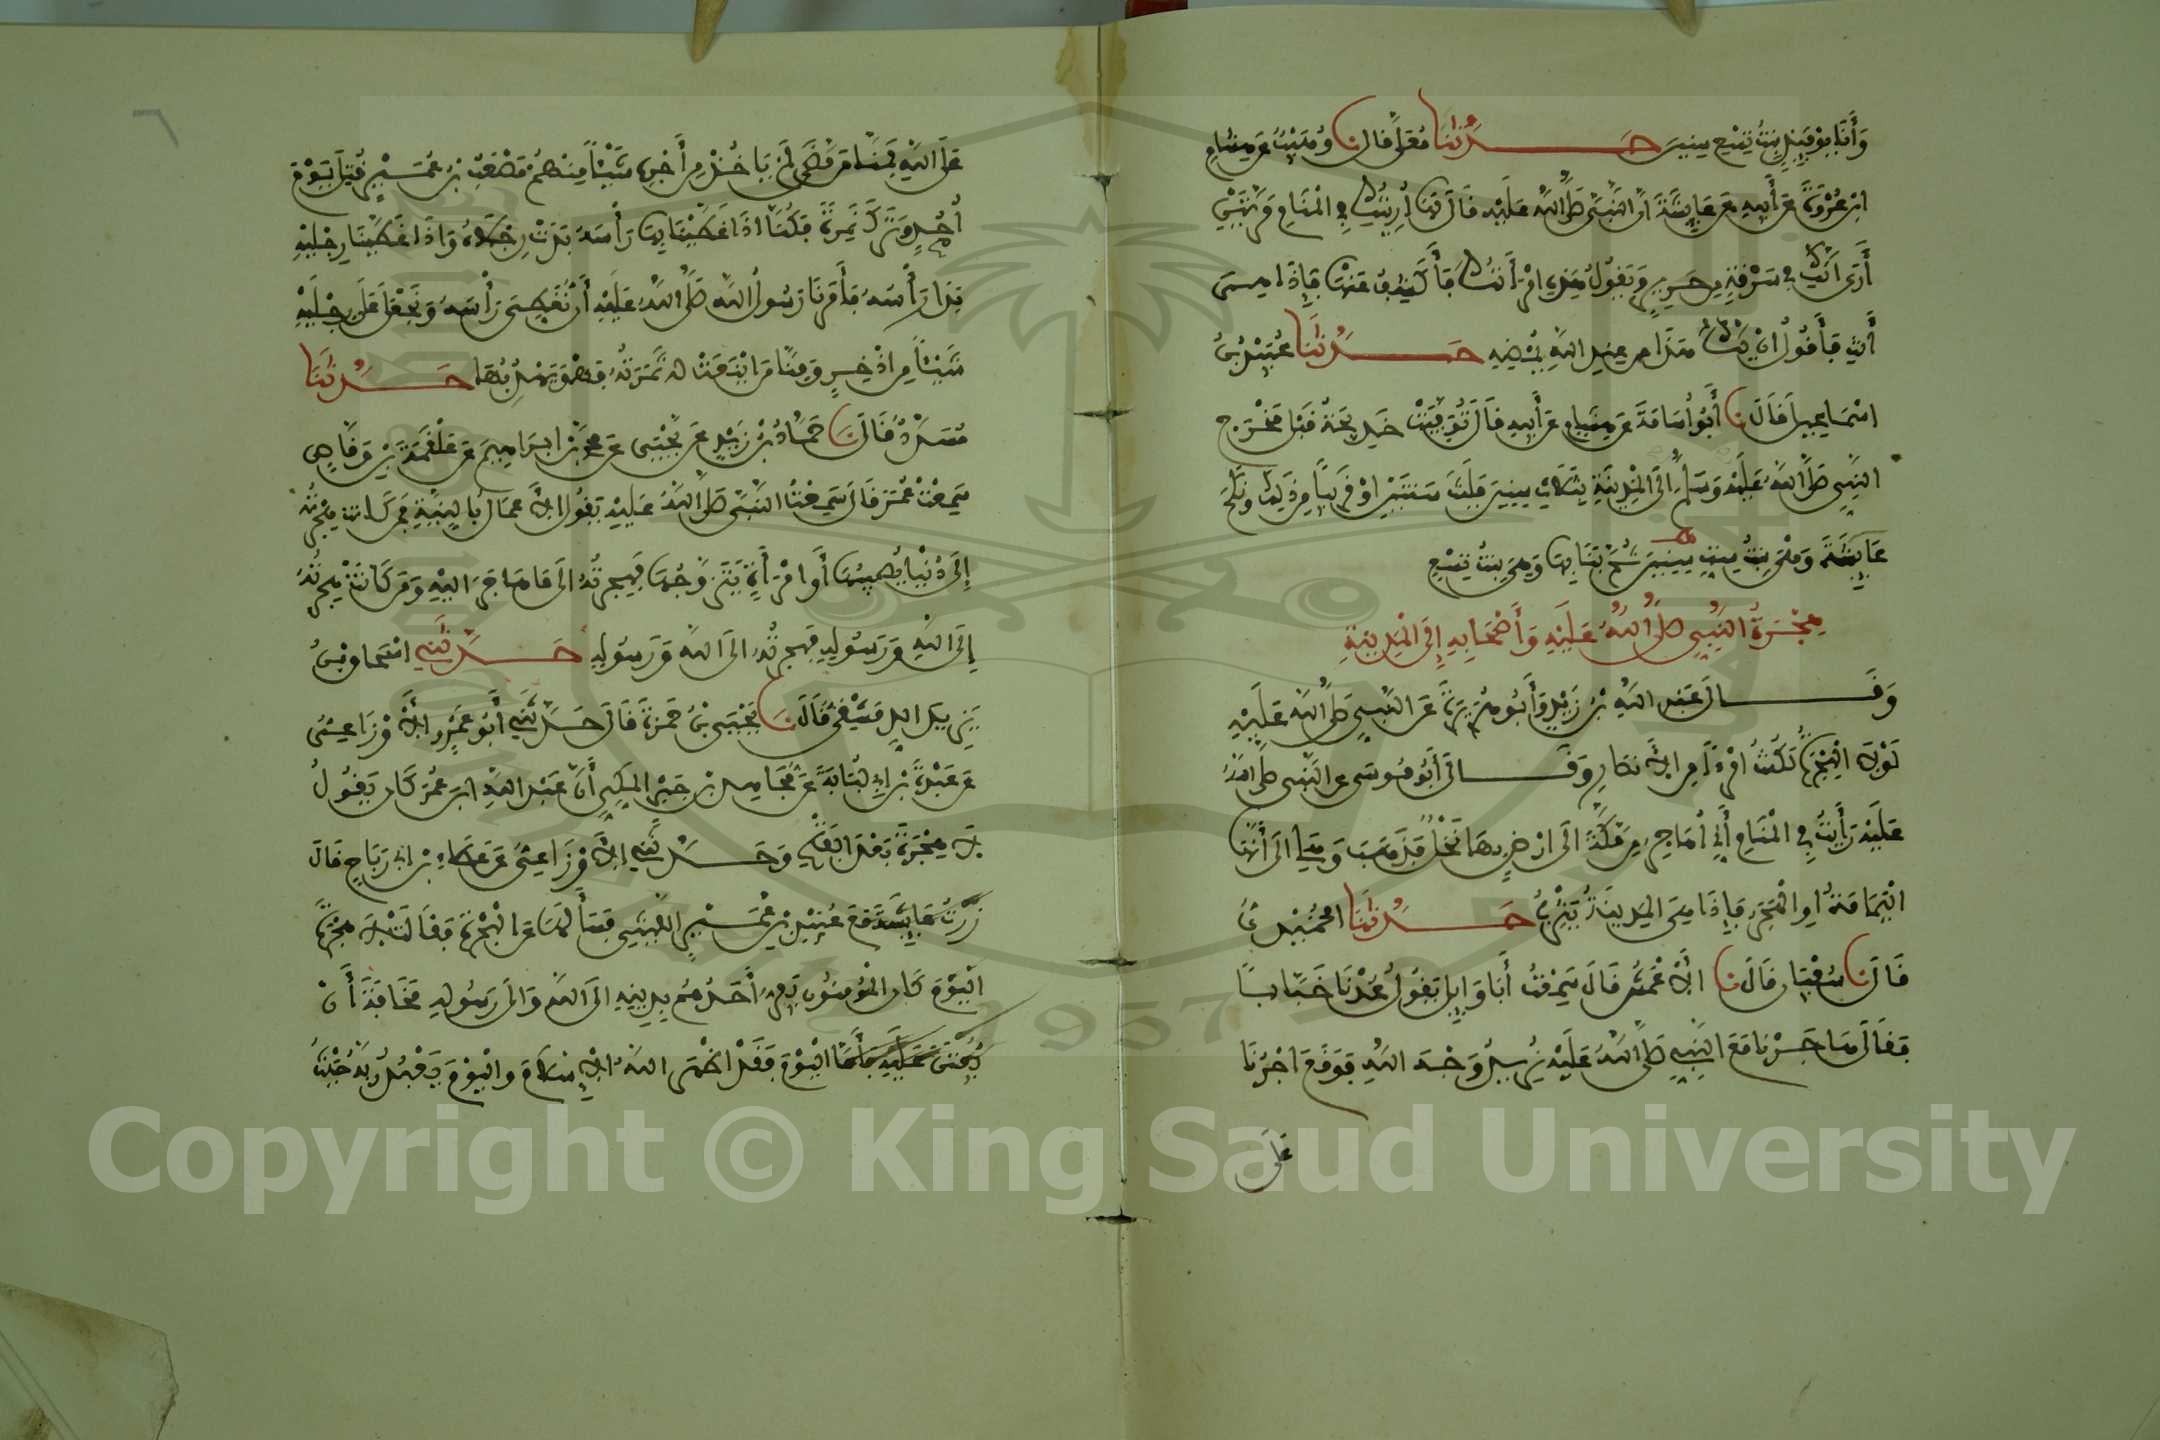 وَأَنَا يَوْمَئِذٍ بِنْتُ تِسْعِ سِنِينَ حَدَّثَنَا مُعَلًّى قَالَ نَا وُهَيْبٌ عَنْ هِشَامِ
ابْنِ عُرْوَةَ عَنْ أَبِيهِ عَنْ عَائِشَةَ أَنَّ النَّبِيَّ صَلَّى اللَّهُ عَلَيْهِ قَالَ لَهَا أُرِيتُكِ فِي الْمَنَامِ مَرَّتَيْنِ
أَرَى أَنَّكِ فِي سَرَقَةٍ مِنْ حَرِيرٍ وَيَقُولُ هَذِهِ امْرَأَتُكَ فَأَكْشِفُ عَنْهَا فَإِذَا هِيَ
أَنْتِ فَأَقُولُ إِنْ يَكُ هَذَا مِنْ عِنْدِ اللَّهِ يُمْضِهِ حَدَّثَنَا عُبَيْدُ بْنُ
اسْمَاعِيلَ قَالَ نَا أَبُو أُسَامَةَ عَنْ هِشَامٍ عَنْ أَبِيهِ قَالَ تُوُفِّيَتْ خَدِيجَةُ قَبْلَ مَخْرَجِ
النَّبِيِّ صَلَّى اللَّهُ عَلَيْهِ وَسَلَّمَ إِلَى الْمَدِينَةِ بِثَلَاثِ سِنِينَ فَلَبِثَ سَنَتَيْنِ أَوْ قَرِيبًا مِنْ ذَلِكَ وَنَكَحَ
عَائِشَةَ وَهْيَ بِنْتُ سِتِّ سِنِينَ ثُمَّ بَنَا بِهَا وَهِيَ بِنْتُ تِسْعِ
هِجْرَةُ النَّبِيِّ صَلَّى اللَّهُ عَلَيْهِ وَأَصْحَابِهِ إِلَى الْمَدِينَةِ
وَقَالَ عَبْدُ اللَّهِ بْنُ زَيْدٍ وَأَبُو هُرَيْرَةَ عَنِ النَّبِيِّ صَلَّى اللَّهُ عَلَيْهِ
لَوْلَا الْهِجْرَةُ لَكُنْتُ امْرَءًا مِنَ الْأَنْصَارِ وَقَالَ أَبُو مُوسَى عَنِ النَّبِيِّ صَلَّى اللَّهُ
عَلَيْهِ رَأَيْتُ فِي الْمَنَامِ أَنِّي أُهَاجِرُ مِنْ مَكَّةَ إِلَى أَرْضٍ بِهَا نَخْلٌ فَذَهَبَ وَهَلِي إِلَى أَنَّهَا
الْيَمَامَةُ أَوِ الْهَجَرُ فَإِذَا هِيَ الْمَدِينَةُ يَثْرِبُ حَدَّثَنَا الْحُمَيْدِيُّ
قَالَ نَا سُفْيَانُ قَالَ نَا الْأَعْمَشُ قَالَ سَمِعْتُ أَبَا وَائِلٍ يَقُولُ عُدْنَا خَبَّابًا
فَقَالَ هَاجَرْنَا مَعَ النَّبِيِّ صَلَّى اللَّهُ عَلَيْهِ نُرِيدُ وَجْهَ اللَّهِ فَوَقَعَ أَجْرُنَا
عَلَى
عَلَى اللَّهِ فَمِنَّا مَنْ مَضَى لَمْ يَأْخُذْ مِنْ أَجْرِهِ شَيْئًا مِنْهُمْ مُصْعَبُ بْنُ عُمَيْرٍ قُتِلَ يَوْمَ
أُحُدٍ وَتَرَكَ نَمِرَةً فَكُنَّا إِذَا غَطَّيْنَا بِهَا رَأْسَهُ بَدَتْ رِجْلَاهُ وَإِذَا غَطَّيْنَا رِجْلَيْهِ
بَدَا رَأْسُهُ فَأَمَرَنَا رَسُولُ اللَّهِ صَلَّى اللَّهُ عَلَيْهِ أَنْ نُغَطِّيَ رَأْسَهُ وَنَجْعَلَ عَلَى رِجْلَيْهِ
شَيْئًا مِنْ إِذْخِرٍ وَمِنَّا مَنْ أَيْنَعَتْ لَهُ ثَمَرَتُهُ فَهْوَ يَهْدِبُهَا حَدَّثَنَا
مُسَدَّدٌ قَالَ نَا حَمَّادُ بْنُ زَيْدٍ عَنْ يَحْيَى عَنْ مُحَمَّدِ بْنِ إِبْرَاهِيمَ عَنْ عَلْقَمَةَ بْنِ وَقَّاصٍ
سَمِعْتُ عُمَرَ قَالَ سَمِعْتُ النَّبِيَّ صَلَّى اللَّهُ عَلَيْهِ يَقُولُ الْأَعْمَالُ بِالنِّيَّةِ فَمَنْ كَانَتْ هِجْرَتُهُ
إِلَى دُنْيَا يُصِيبُهَا أَوِ امْرَأَةٍ يَتَزَوَّجُهَا فَهِجْرَتُهُ إِلَى مَا هَاجَرَ إِلَيْهِ وَمَنْ كَانَتْ هِجْرَتُهُ
إِلَى اللَّهِ وَرَسُولِهِ فَهِجْرَتُهُ إِلَى اللَّهِ وَرَسُولِهِ حَدَّثَنِي إِسْحَاقُ بْنُ
يَزِيدَ الدِّمَشْقِيُّ قَالَ نَا يَحْيَى بْنُ حَمْزَةَ قَالَ حَدَّثَنِي أَبُو عَمْرٍو الْأَوْزَاعِيُّ
عَنْ عَبْدَةَ بْنِ أَبِي لُبَابَةَ عَنْ مُجَاهِدِ بْنِ جَبْرٍ الْمَكِّيِّ أَنَّ عَبْدَ اللَّهِ ابْنَ عُمَرَ كَانَ يَقُولُ
لَا هِجْرَةَ بَعْدَ الْفَتْحِ وَحَدَّثَنِي الْأَوْزَاعِيُّ عَنْ عَطَاءِ بْنِ أَبِي رَبَاحٍ قَالَ
زُرْتُ عَائِشَةَ مَعَ عُبَيْدِ بْنِ عُمَيْرٍ اللَّيْثِيِّ فَسَأَلْتُهَا عَنِ الْهِجْرَةِ فَقَالَتْ لَا هِجْرَةَ
الْيَوْمَ كَانَ الْمُؤْمِنُونَ يَفِرُّ أَحَدُهُمْ بِدِينِهِ إِلَى اللَّهِ وَإِلَى رَسُولِهِ مَخَافَةَ أَنْ
يُفْتَنَ عَلَيْهِ فَأَمَّا الْيَوْمَ فَقَدْ أَظْهَرَ اللَّهُ الْإِسْلَامَ وَالْيَوْمَ يَعْبُدُ رَبَّهُ حَيْثُ
Copyright © King Saud University
1957